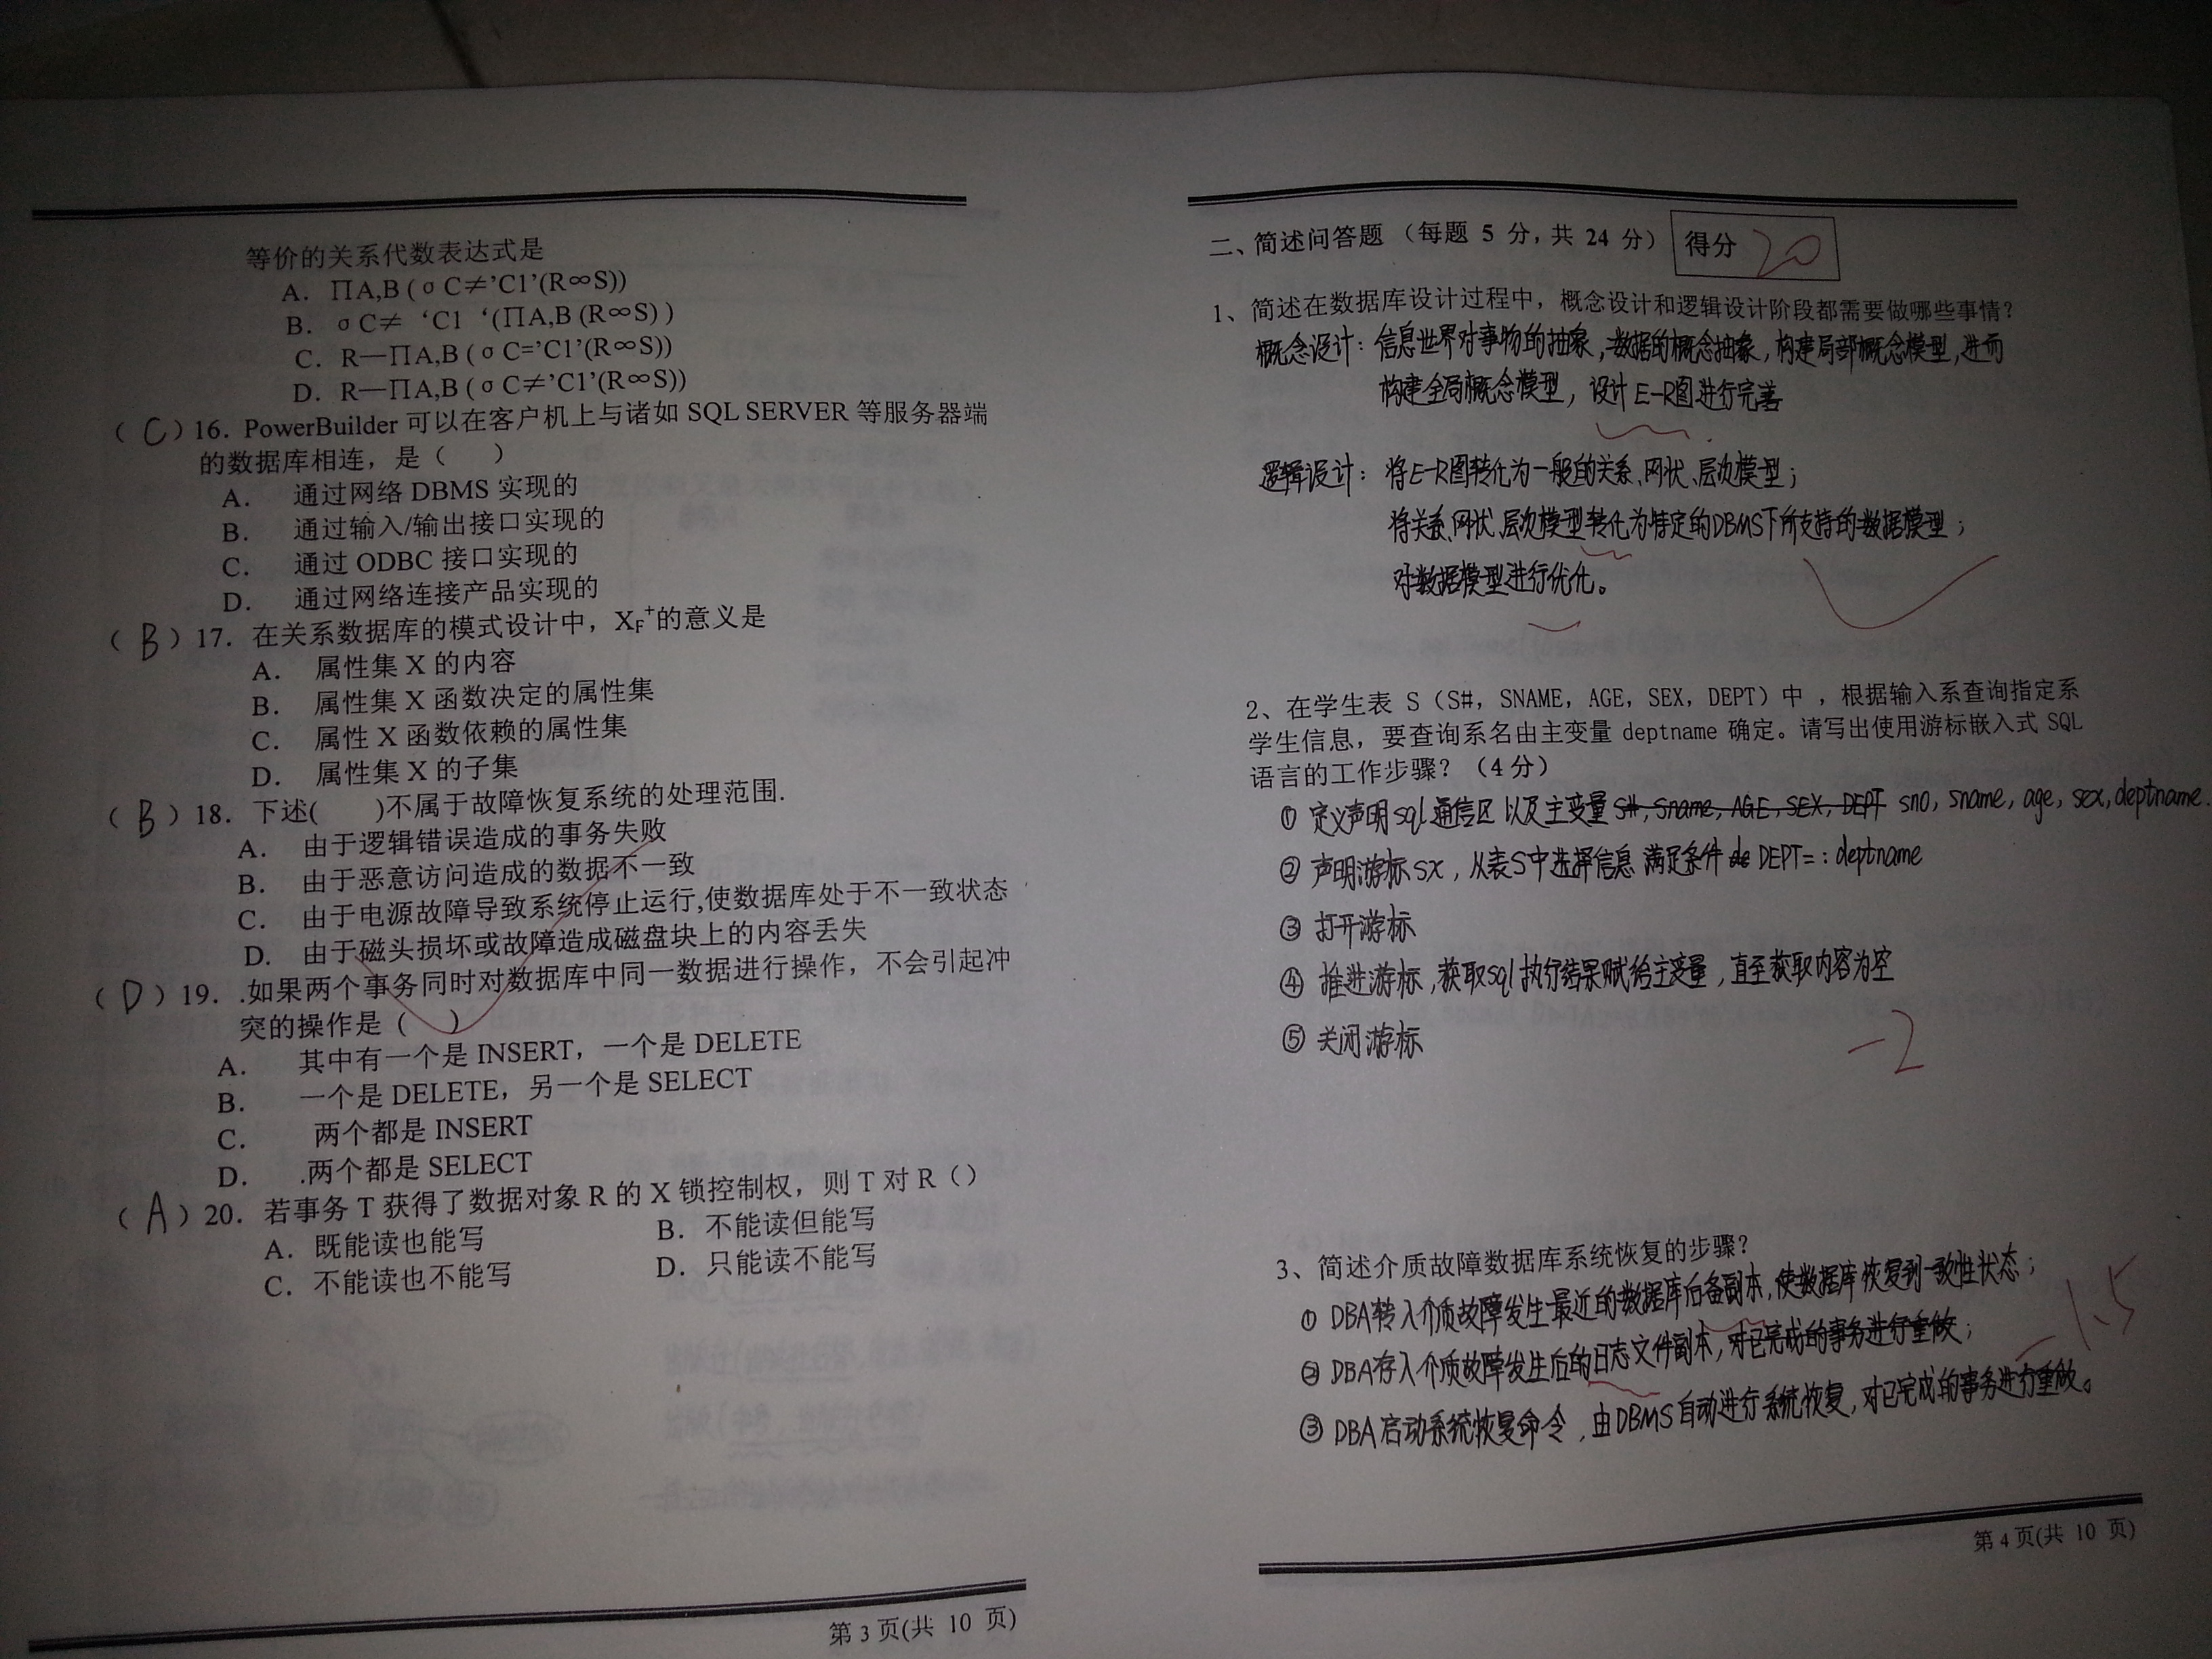 等价的关系代数表达式是
A. ∏A,B (σC≠’C1’(R∞S))
B. σC≠ ‘C1 ‘(∏A,B (R∞S) )
C. R—∏A,B (σC=’C1’(R∞S))
D. R—∏A,B (σC≠’C1’(R∞S))
(C) 16. PowerBuilder 可以在客户机上与诸如 SQL SERVER 等服务器端
的数据库相连，是（ ）
A. 通过网络 DBMS 实现的
B. 通过输入/输出接口实现的
C. 通过 ODBC 接口实现的
D. 通过网络连接产品实现的
(B) 17. 在关系数据库的模式设计中，XF+的意义是
A. 属性集 X 的内容
B. 属性集 X 函数决定的属性集
C. 属性 X 函数依赖的属性集
D. 属性集 X 的子集
(B) 18. 下述( )不属于故障恢复系统的处理范围.
A. 由于逻辑错误造成的事务失败
B. 由于恶意访问造成的数据不一致
C. 由于电源故障导致系统停止运行,使数据库处于不一致状态
D. 由于磁头损坏或故障造成磁盘块上的内容丢失
(D) 19. .如果两个事务同时对数据库中同一数据进行操作，不会引起冲
突的操作是（ ）
A. 其中有一个是 INSERT，一个是 DELETE
B. 一个是 DELETE，另一个是 SELECT
C. 两个都是 INSERT
D. .两个都是 SELECT
(A) 20. 若事务 T 获得了数据对象 R 的 X 锁控制权，则 T 对 R（）
A. 既能读也能写 B. 不能读但能写
C. 不能读也不能写 D. 只能读不能写
第 3 页(共 10 页)
二、简述问答题（每题 5 分,共 24 分） 得分 20
1、简述在数据库设计过程中，概念设计和逻辑设计阶段都需要做哪些事情?
概念设计：信息世界对事物的抽象，数据的概念抽象，构建局部概念模型，进而
构建全局概念模型，设计E-R图进行完善
逻辑设计：将E-R图转化为一般的关系、网状、层次模型；
将关系、网状、层次模型转化为特定的DBMS下所支持的数据模型；
对数据模型进行优化。
2、在学生表 S（S#, SNAME, AGE, SEX, DEPT）中 ，根据输入系查询指定系
学生信息，要查询系名由主变量 deptname 确定。请写出使用游标嵌入式 SQL
语言的工作步骤？（4 分）
① 定义声明sql通信区 以及主变量 S#, Sname, AGE, SEX, DEPT sno, sname, age, sex, deptname.
② 声明游标SX，从表S中选择信息 满足条件 de DEPT=:deptname
③ 打开游标
④ 推进游标,获取sql执行结果赋给主变量，直至获取内容为空
⑤ 关闭游标
-2
3、简述介质故障数据库系统恢复的步骤?
① DBA转入介质故障发生最近的数据库后备副本,使数据库恢复到一致性状态；
② DBA存入介质故障发生后的日志文件副本，对已完成的事务进行重做；
-1.5
③ DBA启动系统恢复命令，由DBMS自动进行系统恢复，对已完成的事务进行重做。
第 4 页(共 10 页)